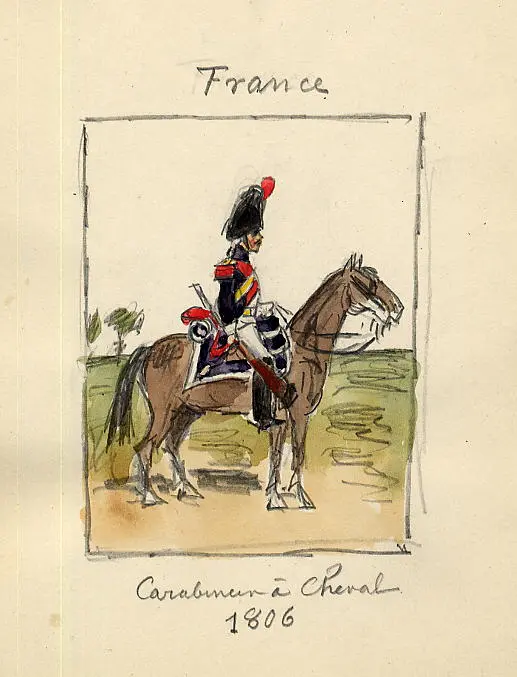 France
Carabinier à Cheval
1806